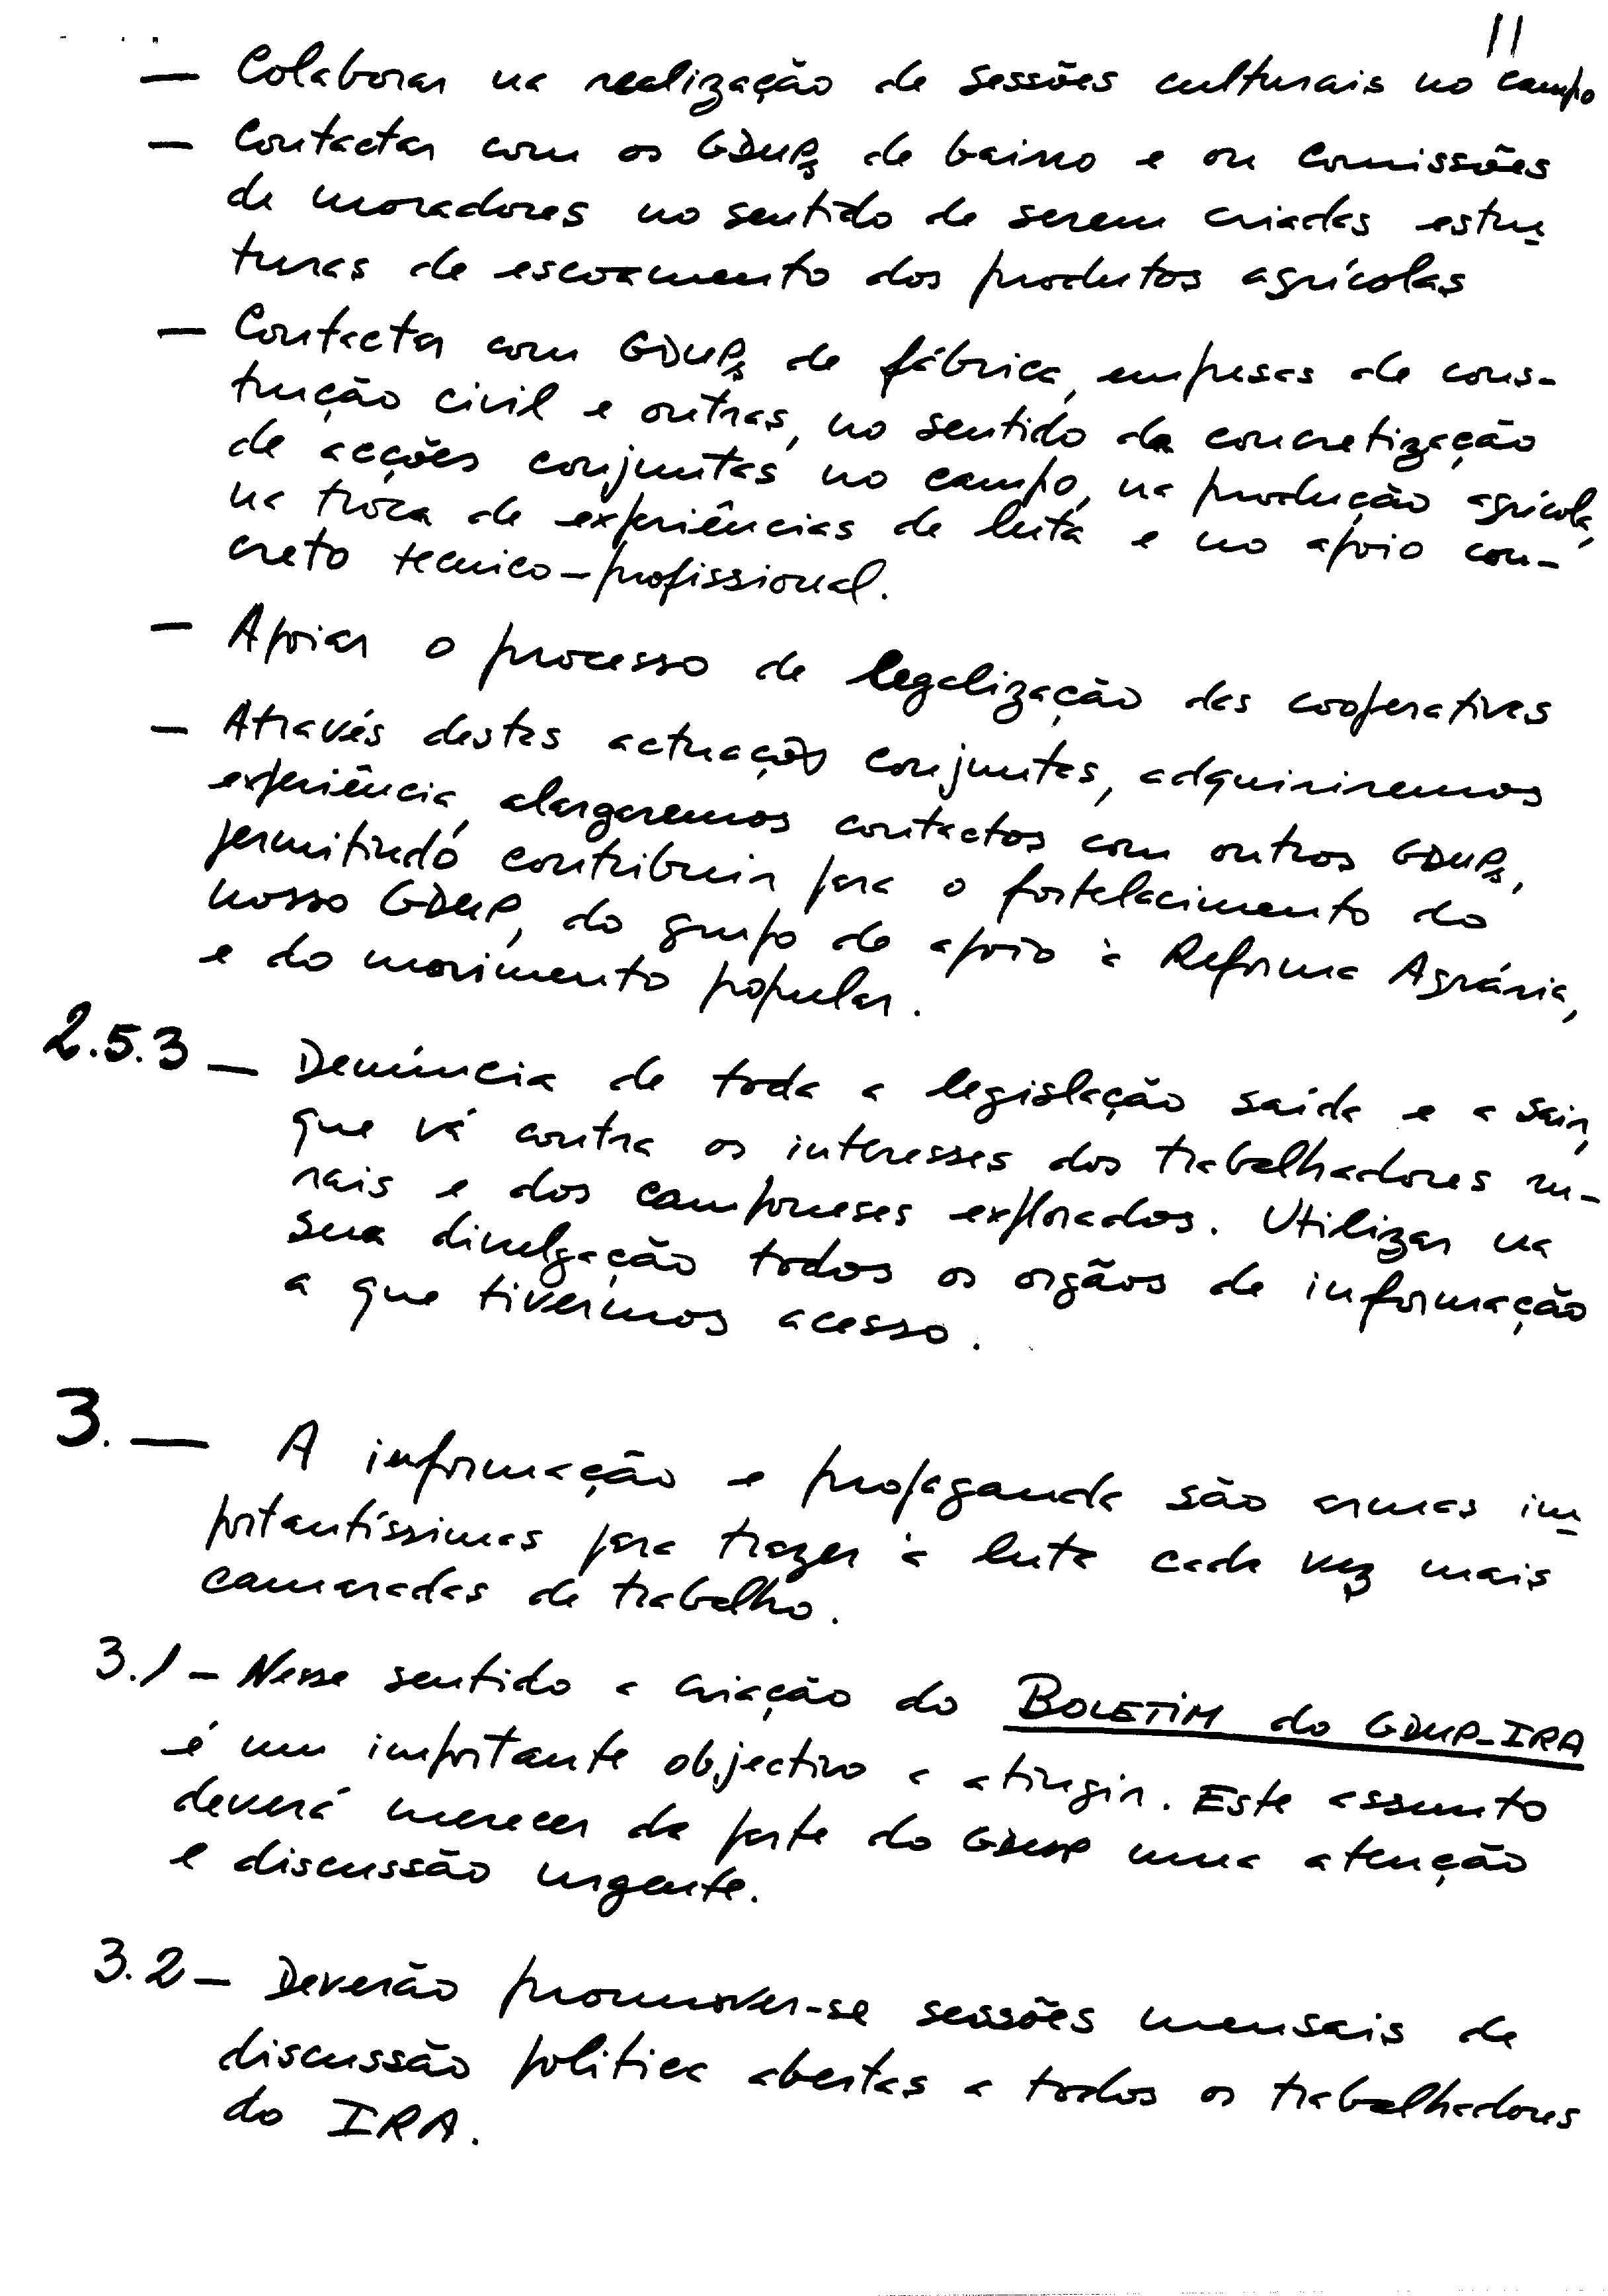 11
— Colaborar na realização de sessões culturais no campo
— Contactar com os GDUPs de bairro e ou Comissões
de moradores no sentido de serem criadas estru
turas de escoamento dos produtos agrícolas
— Contactar com GDUPs de fábrica, empresas de cons-
trução civil e outras, no sentido da concretização
de acções conjuntas no campo, na produção agrícola,
na troca de experiências de luta e no apoio con-
creto tecnico-profissional.
— Apoiar o processo de legalização das cooperativas
— Através destas actuações conjuntas, adquiriremos
experiência, alargaremos contactos com outros GDUPs,
permitindo contribuir para o fortelacimento do
nosso GDUP, do grupo de apoio à Reforma Agrária,
e do movimento popular.
2.5.3 — Denúncia de toda a legislação saída e a sair,
que vá contra os interesses dos trabalhadores ru-
rais e dos camponeses explorados. Utilizar na
sua divulgação todos os orgãos de informação
a que tivermos acesso.
3. — A informação e propaganda são armas im
portantíssimas para trazer à luta cada vez mais
camaradas de trabalho.
3.1 — Nesse sentido a criação do BOLETIM do GDUP-IRA
é um importante objectivo a atingir. Este assunto
deverá merecer da parte do GDUP uma atenção
e discussão urgente.
3.2 — Deverão promover-se sessões mensais de
discussão politica abertas a todos os trabalhadores
do IRA.